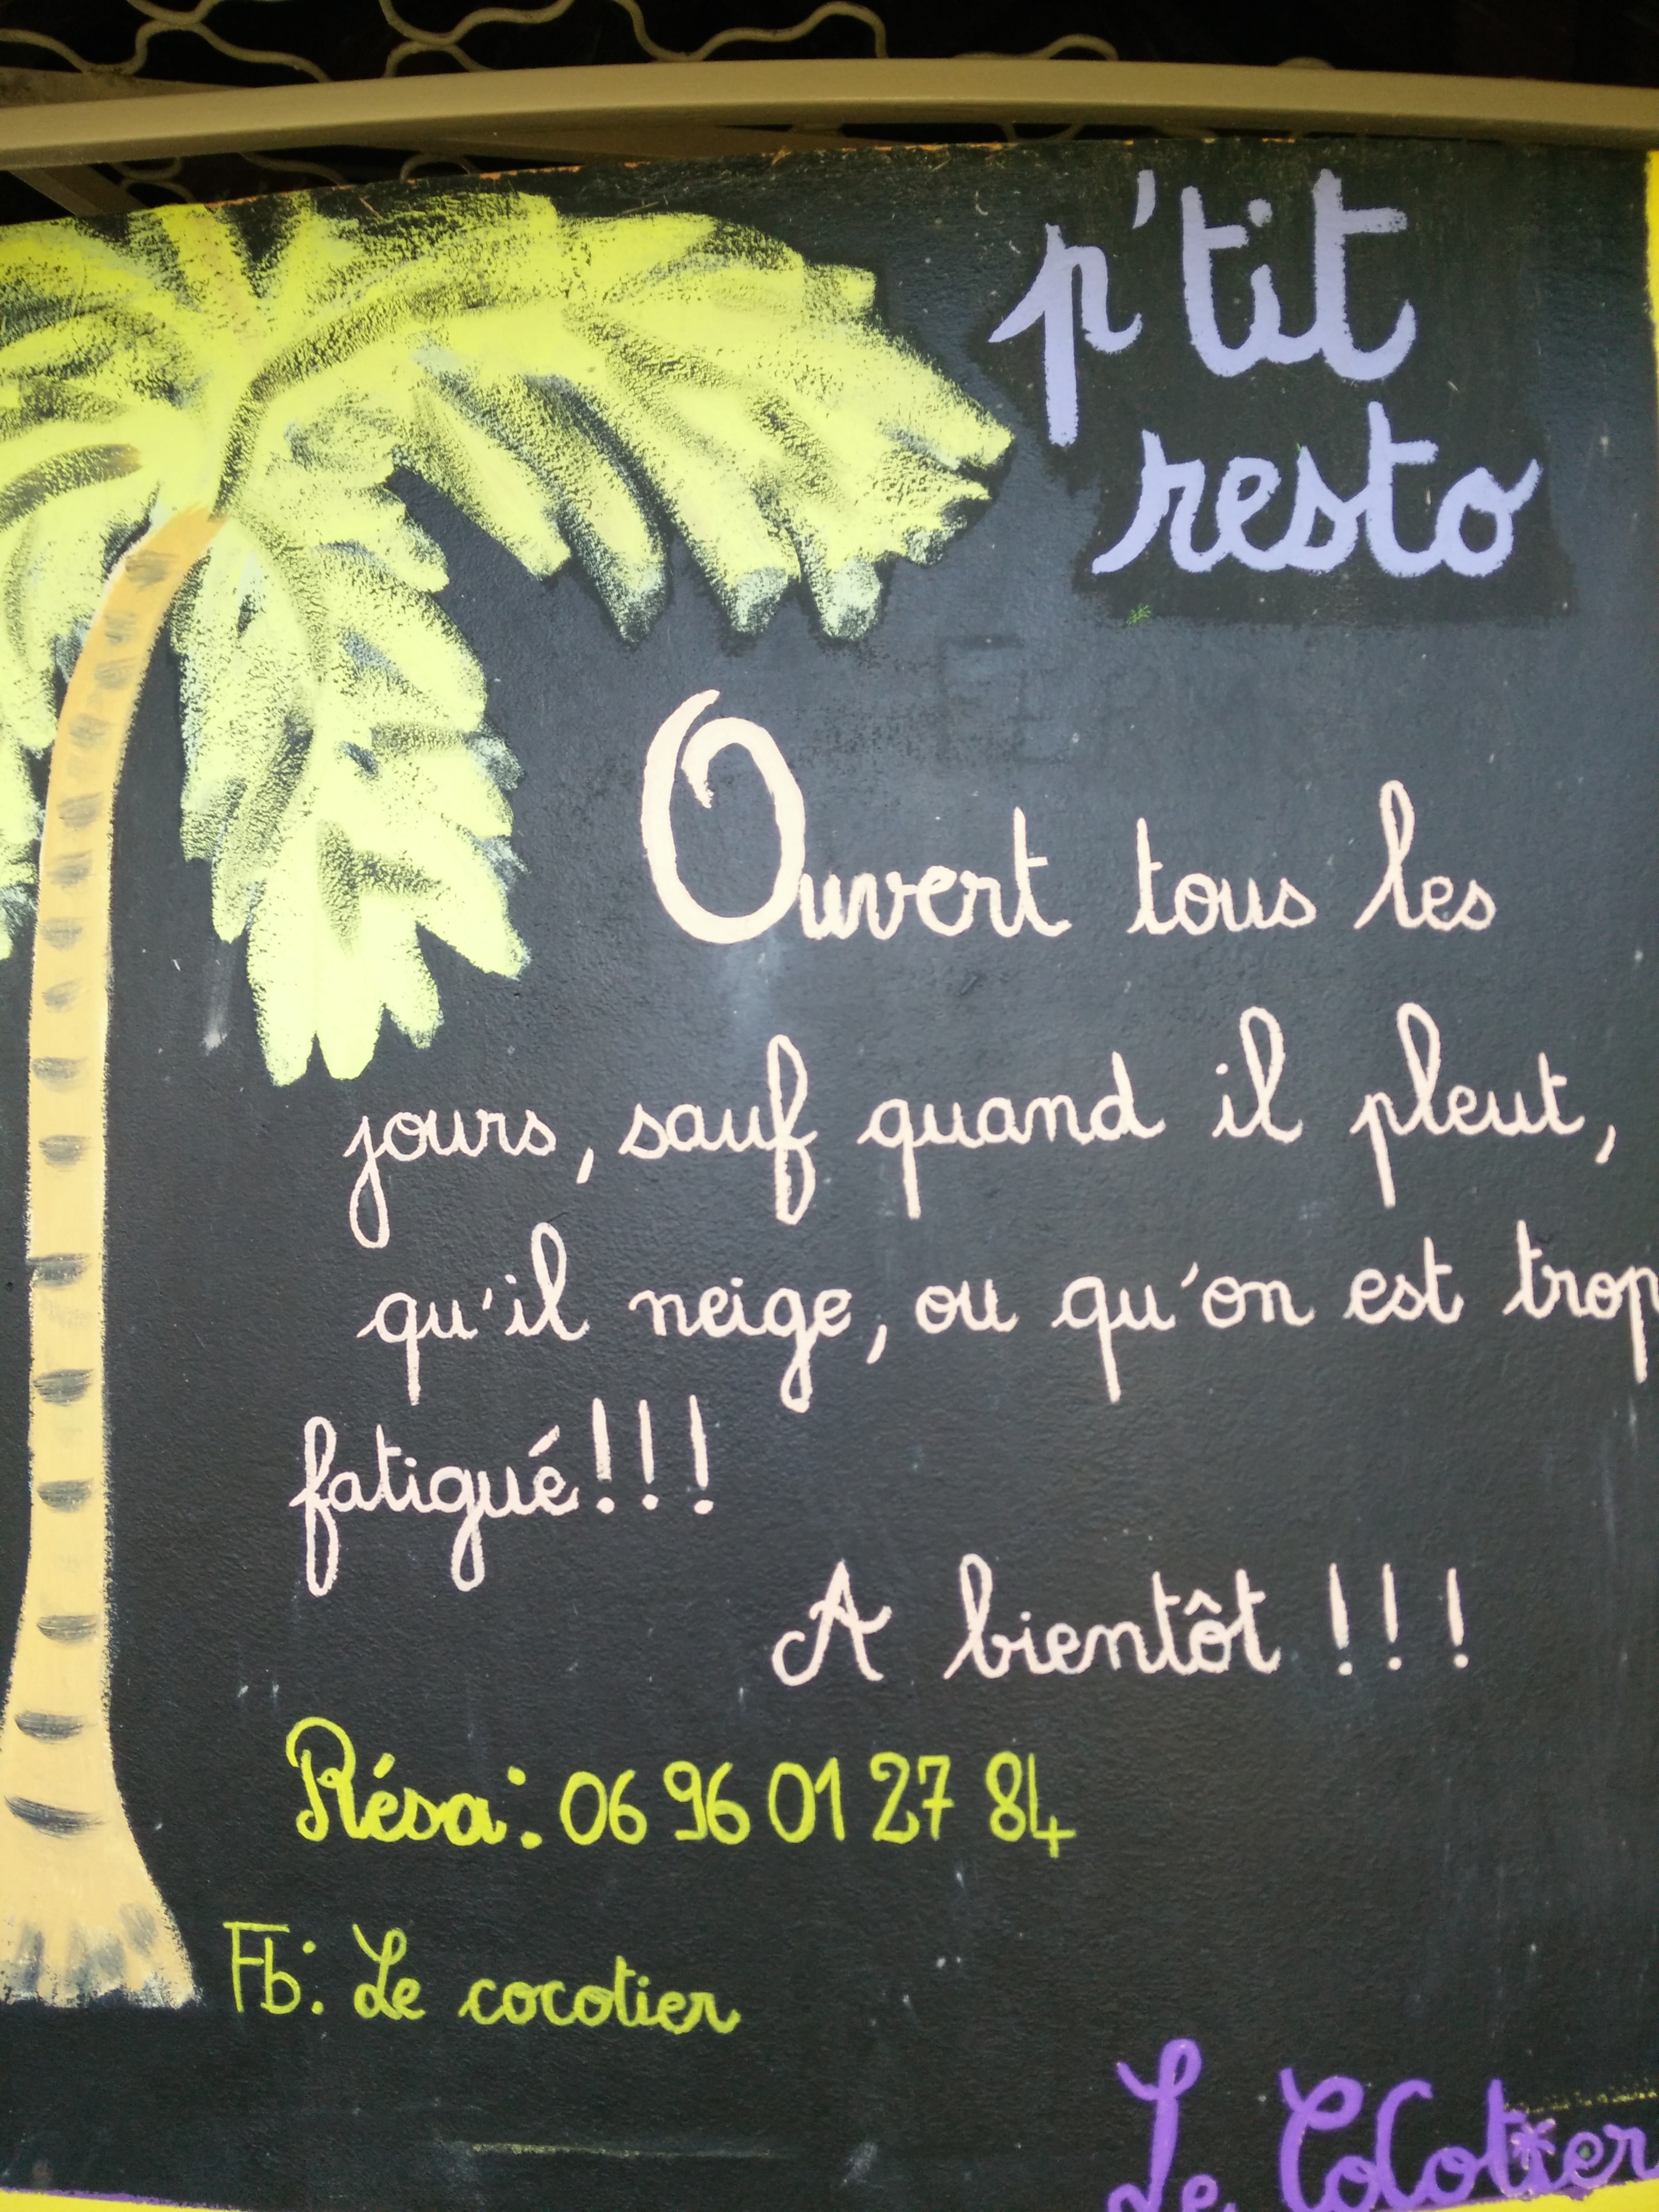 p'tit
resto
Ouvert tous les
jours, sauf quand il pleut,
qu'il neige, ou qu'on est trop
fatigué!!!
A bientôt !!!
Résa: 06 96 01 27 84
Fb: Le cocotier
Le CoCotier